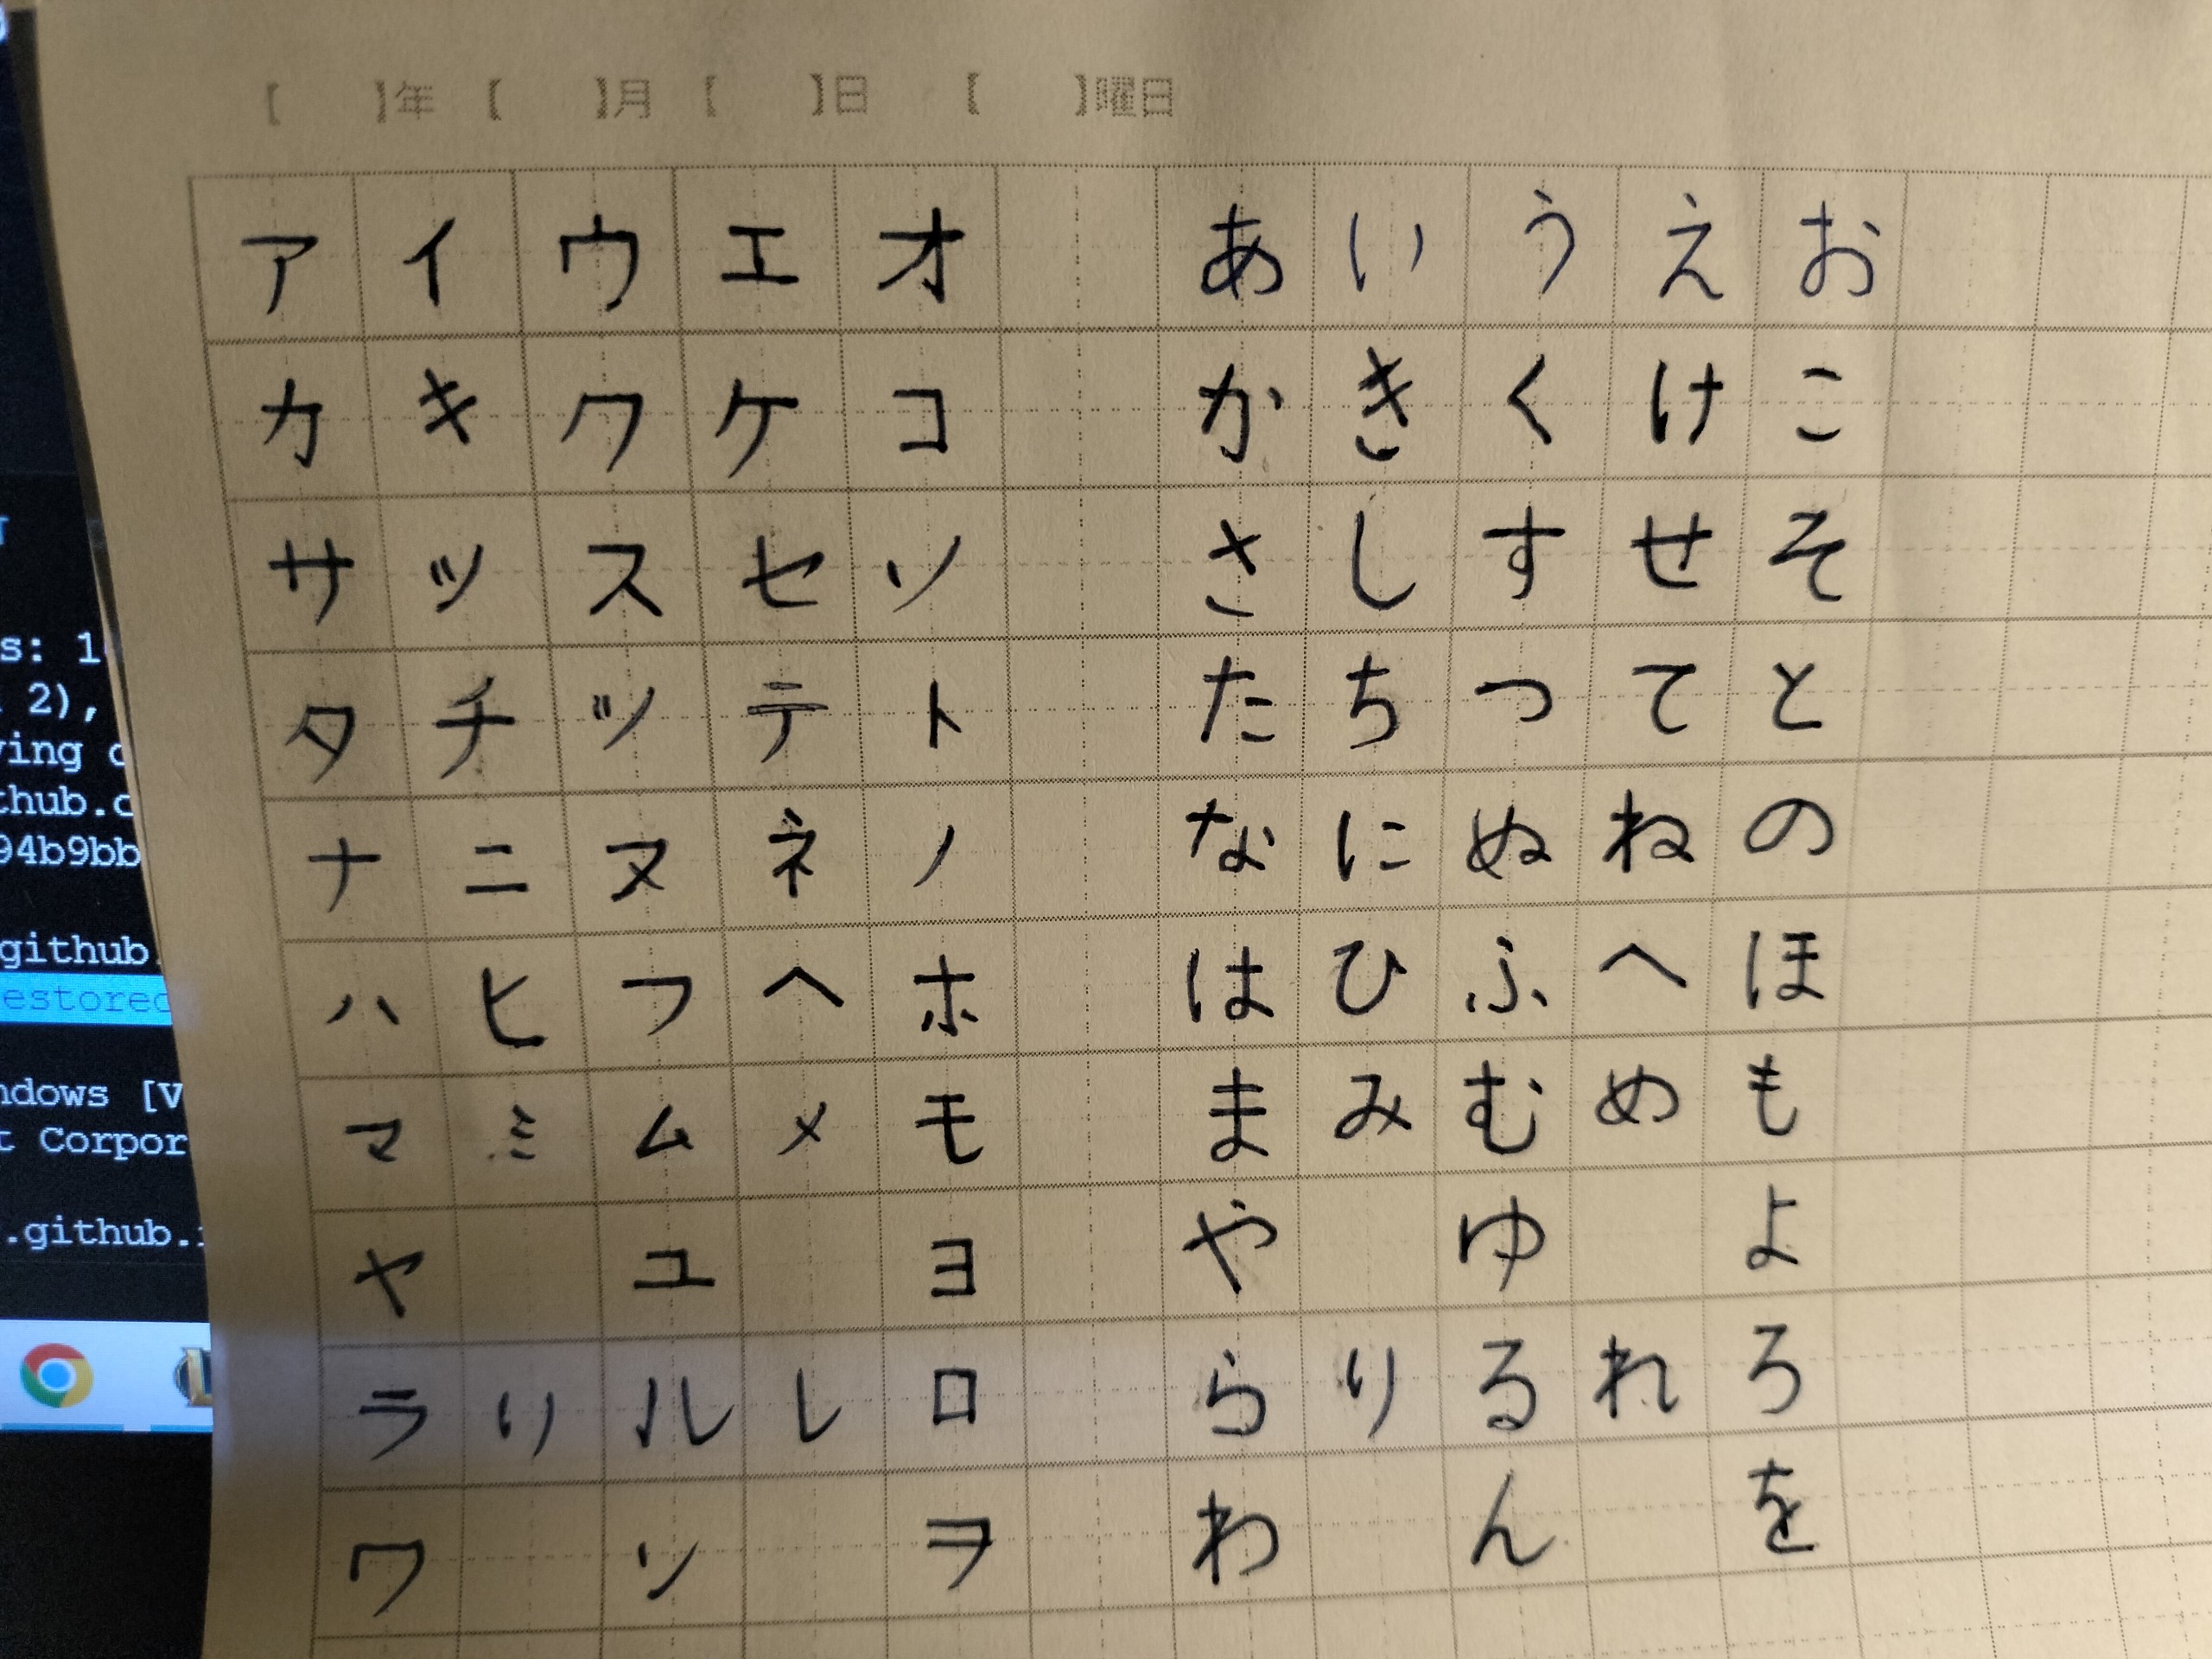 【 】年 【 】月 【 】日 【 】曜日
ア イ ウ エ オ あ い う え お
カ キ ク ケ コ か き く け こ
サ ッ ス セ ソ さ し す せ そ
タ チ ツ テ ト た ち つ て と
ナ ニ ヌ ネ ノ な に ぬ ね の
ハ ヒ フ ヘ ホ は ひ ふ へ ほ
マ ミ ム メ モ ま み む め も
ヤ ユ ヨ や ゆ よ
ラ リ ル レ ロ ら り る れ ろ
ワ ソ ヲ わ ん を
s: 1
2),
ying
thub.c
94b9bb
github.
estored
ndows [V
t Corpor
.github.i